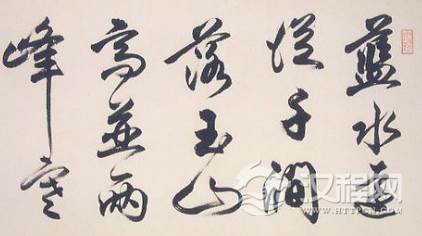 藍水遠
從千澗
落玉山
高並兩
峰寒
汉程网